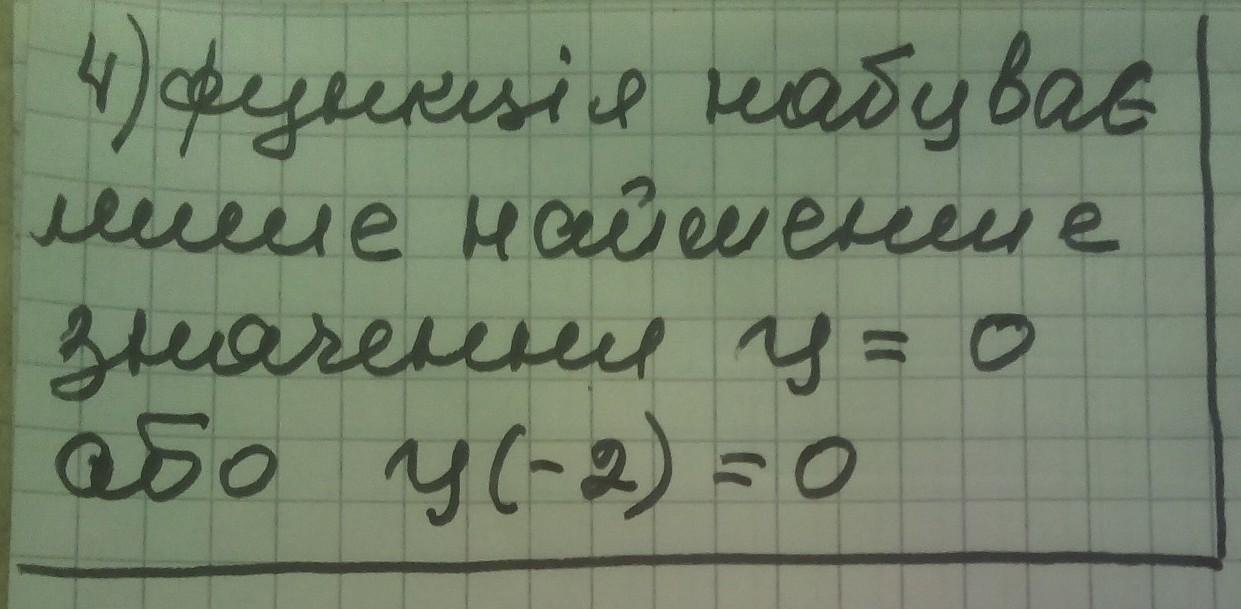 4) функція набуває
лише найменше
значення y = 0
або y(-2) = 0